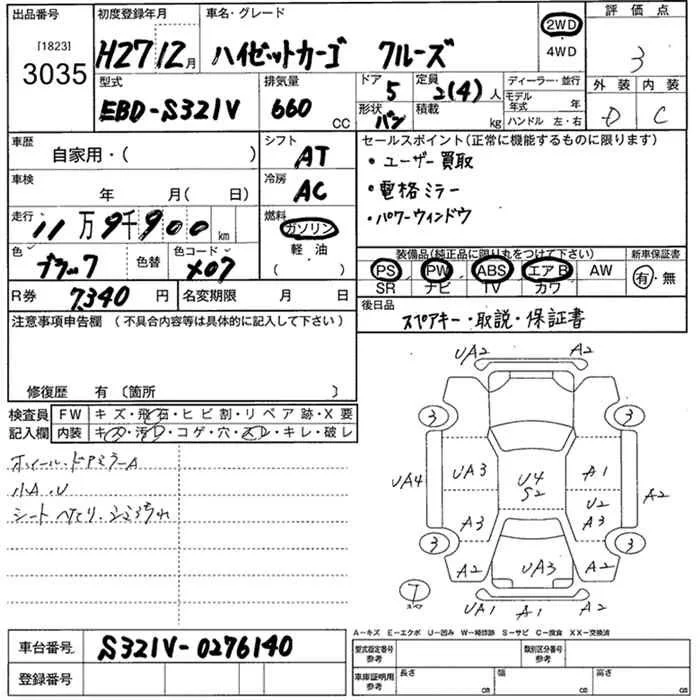 出品番号
[1823]
3035
初度登録年月
H27 12月
車名・グレード
ハイゼットカーゴ クルーズ
2WD
・
4WD
評価点
3
外装 内装
D C
型式
EBD-S321V
排気量
660 CC
ドア
5
形状
バン
定員
2(4)人
積載
kg
ディーラー・並行
モデル年式 年
ハンドル 左・右
車歴
自家用・( )
シフト
AT
車検
年 月( 日)
冷房
AC
走行
11万9千900km
燃料
ガソリン
軽・油
( )
色
ブラック
色替
色コード
X07
R券 7340円
名変期限 月 日
セールスポイント(正常に機能するものに限ります)
・ユーザー買取
・電格ミラー
・パワーウィンドウ
装備品(純正品に限り丸をつけて下さい)
PS PW ABS エアB AW
SR ナビ TV カワ
新車保証書
有・無
後日品
スペアキー・取説・保証書
注意事項申告欄 (不具合内容等は具体的に記入して下さい)
修復歴 有〔箇所 〕
検査員記入欄
FW キズ・飛石・ヒビ割・リペア跡・X要
内装 キズ・汚レ・コゲ・穴・スレ・キレ・破レ
ホイール・ドアミラーA
小A.U
シート
UA2 A2
3 3
UA4 UA3 U4 S2 A1 A2
U2
A3 A3
3 3
A2 UA3 A2
T
スペア
UA1 A1 A2
A-キズ E-エクボ U-凹み W-補修跡 S-サビ C-腐食 XX-交換済
車台番号 S321V-0276140
登録番号
型式指定番号
参考
類別区分番号
参考
車庫証明用
参考
長さ cm
幅 cm
高さ cm